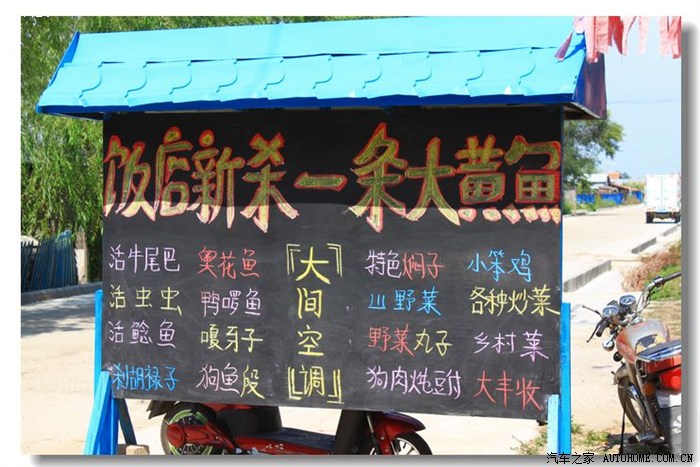 饭店新杀一条大黄鱼
活牛尾巴
活虫虫
活鲶鱼
刹胡禄子
奥花鱼
鸭啰鱼
嘎牙子
狗鱼段
『大间空调』
特色焖子
山野菜
野菜丸子
狗肉炖豆付
小笨鸡
各种炒菜
乡村菜
大丰收
汽车之家 AUTOHOME.COM.CN